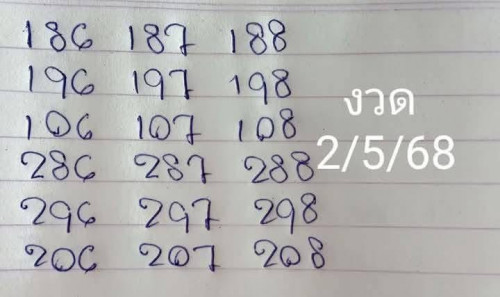 186 187 188
196 197 198
106 107 108
286 287 288
296 297 298
206 207 208
งวด
2/5/68